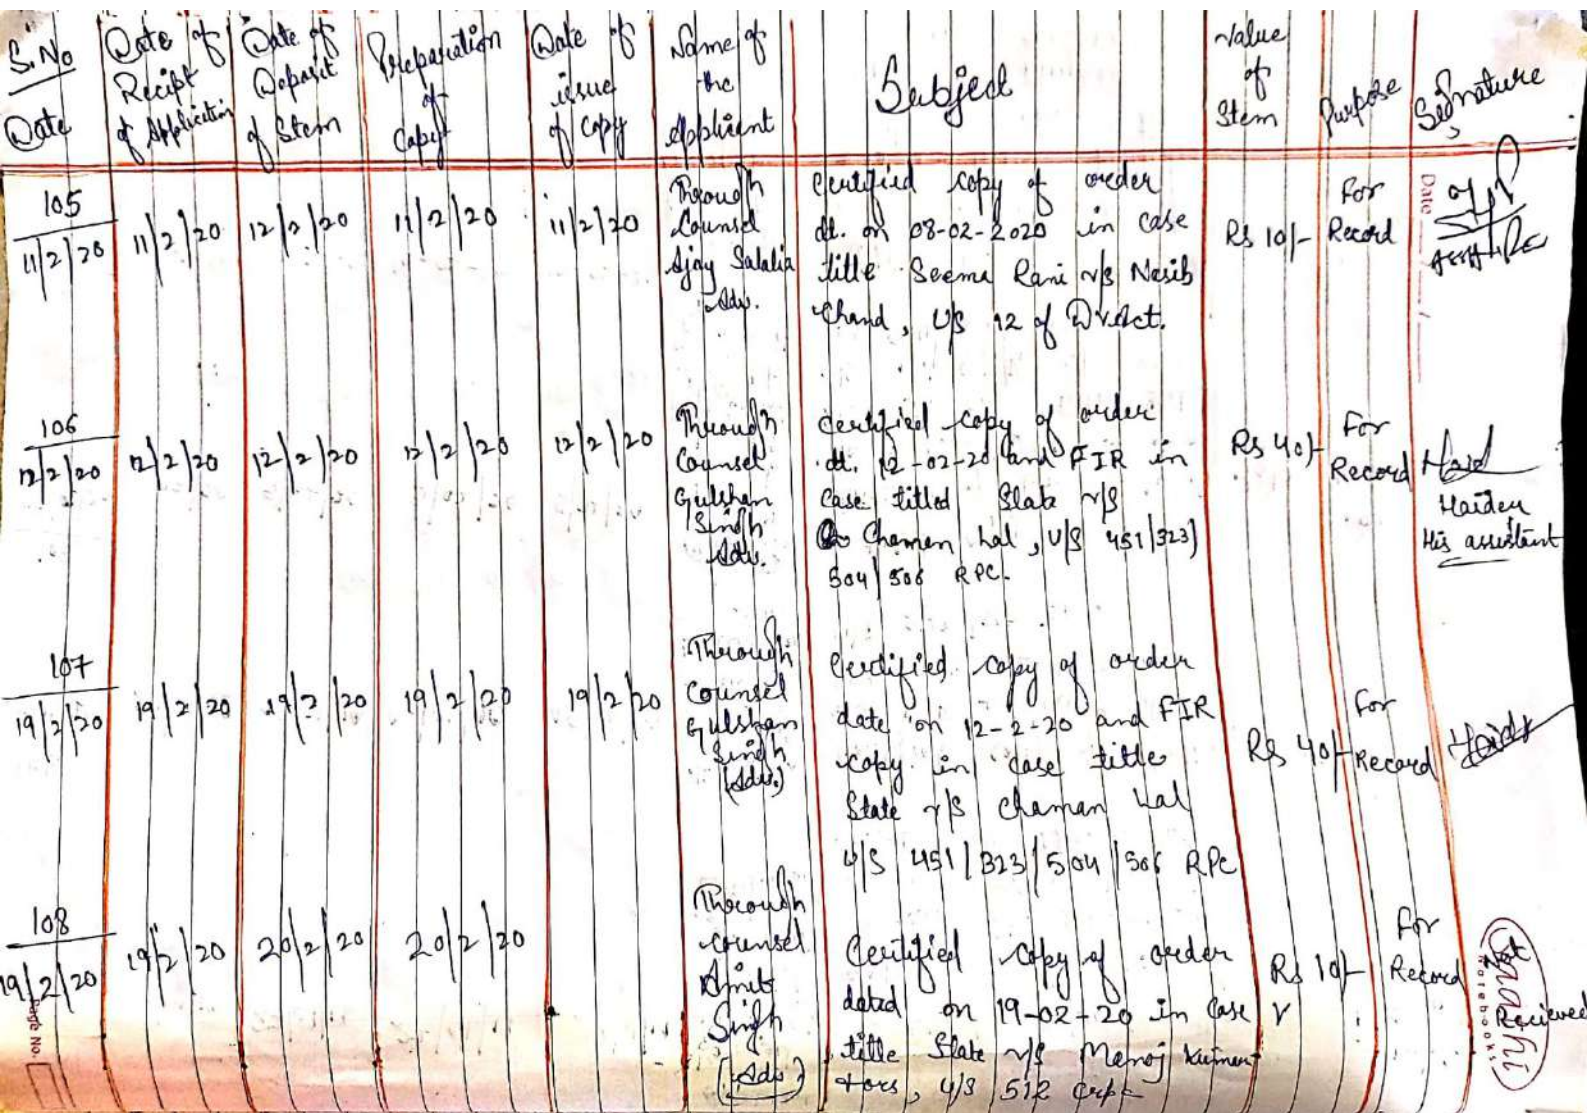 S.No Date
Date of Recipt of Application
Date of Deposit of Stem
Preparation of Copy
Date of issue of Copy
Name of the Applicant
Subject
Value of Stem
Purpose
Signature
105
11/2/20
11/2/20
12/2/20
11/2/20
11/2/20
Through
Counsel
Ajay Salalia
Adv.
Certified copy of order
dt. on 08-02-2020 in case
title Seema Rani v/s Nasib
Chand, U/S 12 of D.V.Act.
Rs 10/-
For
Record
Date
106
12/2/20
12/2/20
12/2/20
12/2/20
12/2/20
Through
Counsel
Gulshan
Singh
Adv.
Certified copy of order
dt. 12-02-20 and FIR in
case titled State v/s
Chaman Lal, U/S 451/323/
504/506 RPC.
Rs 40/-
For
Record
Haid
Haider
His assistant
107
19/2/20
19/2/20
19/2/20
19/2/20
19/2/20
Through
Counsel
Gulshan
Singh
(Adv.)
Certified copy of order
date on 12-2-20 and FIR
copy in case title
State v/s Chaman Lal
U/S 451/323/504/506 RPC
Rs 40/-
For
Record
108
19/2/20
19/2/20
20/2/20
20/2/20
Through
counsel
Amit
Singh
(Adv)
Certified copy of order
dated on 19-02-20 in Case
title State v/s Manoj Kumar
+ors, U/S 512 crpc
Rs 10/-
For
Record
Recieved
Page No.
Notebooks